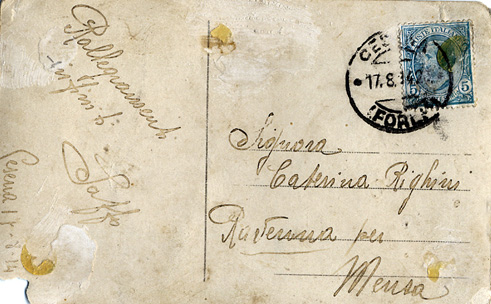 Rallegramenti
infiniti
Saffo
Cesena 17-8-14
POSTE ITALIANE
5 5
CESENA
17.8.14
(FORLÌ)
Signora
Caterina Righini
Ravenna per
Mensa